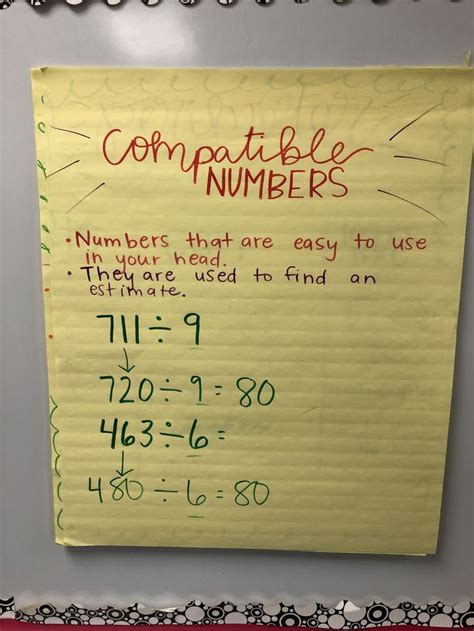 Compatible
NUMBERS
• Numbers that are easy to use
in your head.
• They are used to find an
estimate.
711 ÷ 9
↓
720 ÷ 9 = 80
463 ÷ 6 =
↓
480 ÷ 6 = 80